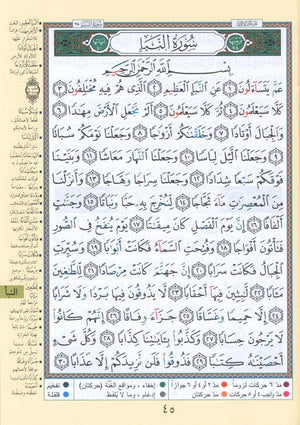 سُورَةُ النَّبَإِ
بِسْمِ ٱللَّهِ ٱلرَّحْمَٰنِ ٱلرَّحِيمِ
عَمَّ يَتَسَآءَلُونَ ١ عَنِ ٱلنَّبَإِ ٱلْعَظِيمِ ٢ ٱلَّذِى هُمْ فِيهِ مُخْتَلِفُونَ ٣
كَلَّا سَيَعْلَمُونَ ٤ ثُمَّ كَلَّا سَيَعْلَمُونَ ٥ أَلَمْ نَجْعَلِ ٱلْأَرْضَ مِهَٰدًا ٦
وَٱلْجِبَالَ أَوْتَادًا ٧ وَخَلَقْنَٰكُمْ أَزْوَٰجًا ٨ وَجَعَلْنَا نَوْمَكُمْ سُبَاتًا
٩ وَجَعَلْنَا ٱلَّيْلَ لِبَاسًا ١٠ وَجَعَلْنَا ٱلنَّهَارَ مَعَاشًا ١١ وَبَنَيْنَا
فَوْقَكُمْ سَبْعًا شِدَادًا ١٢ وَجَعَلْنَا سِرَاجًا وَهَّاجًا ١٣ وَأَنزَلْنَا
مِنَ ٱلْمُعْصِرَٰتِ مَآءً ثَجَّاجًا ١٤ لِّنُخْرِجَ بِهِۦ حَبًّا وَنَبَاتًا ١٥ وَجَنَّٰتٍ
أَلْفَافًا ١٦ إِنَّ يَوْمَ ٱلْفَصْلِ كَانَ مِيقَٰتًا ١٧ يَوْمَ يُنفَخُ فِى ٱلصُّورِ
فَتَأْتُونَ أَفْوَاجًا ١٨ وَفُتِحَتِ ٱلسَّمَآءُ فَكَانَتْ أَبْوَٰبًا ١٩ وَسُيِّرَتِ
ٱلْجِبَالُ فَكَانَتْ سَرَابًا ٢٠ إِنَّ جَهَنَّمَ كَانَتْ مِرْصَادًا ٢١ لِّلطَّٰغِينَ
مَـَٔابًا ٢٢ لَّٰبِثِينَ فِيهَآ أَحْقَابًا ٢٣ لَّا يَذُوقُونَ فِيهَا بَرْدًا وَلَا شَرَابًا
٢٤ إِلَّا حَمِيمًا وَغَسَّاقًا ٢٥ جَزَآءً وِفَاقًا ٢٦ إِنَّهُمْ كَانُوا۟
لَا يَرْجُونَ حِسَابًا ٢٧ وَكَذَّبُوا۟ بِـَٔايَٰتِنَا كِذَّابًا ٢٨ وَكُلَّ شَىْءٍ
أَحْصَيْنَٰهُ كِتَٰبًا ٢٩ فَذُوقُوا۟ فَلَن نَّزِيدَكُمْ إِلَّا عَذَابًا ٣٠
مدّ ٦ حركات لزوماً مدّ ٢ أو ٤ أو ٦ جوازاً إخفاء، ومواقع الغُنَّة (حركتان) تفخيم
مدّ واجب ٤ أو ٥ حركات مدّ حركتان إدغام، وما لا يُلفَظ قلقلة
النبإ
٤٥